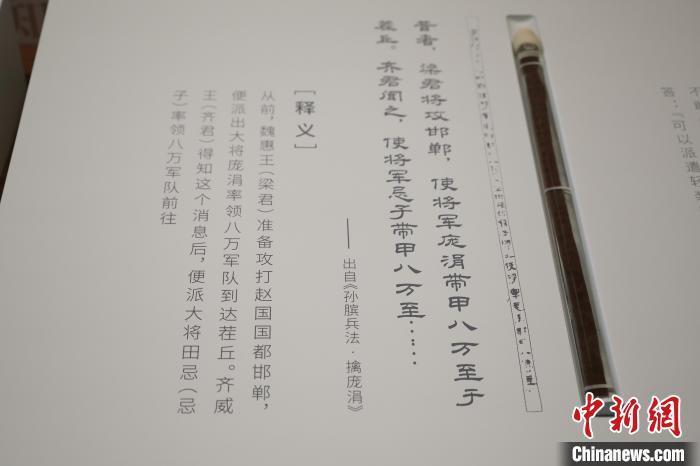 昔者,梁君将攻邯郸,使将军庞涓带甲八万至于
茬丘。齐君闻之,使将军忌子带甲八万至……
——出自《孙膑兵法·擒庞涓》
[释义]
从前,魏惠王(梁君)准备攻打赵国国都邯郸,
便派出大将庞涓率领八万军队到达茬丘。齐威
王(齐君)得知这个消息后,便派大将田忌(忌
子)率领八万军队前往
答:“可以派遣轻
中新网
Chinanews.com